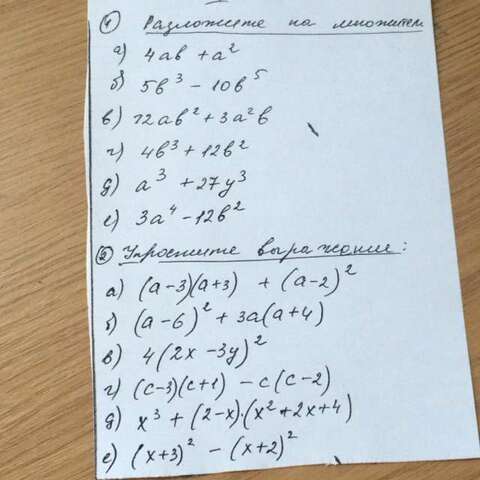 ① Разложите на множители
а) 4ав + а²
б) 5в³ - 10в⁵
в) 12ав² + 3а²в
г) 4в³ + 12в²
д) а³ + 27y³
е) 3а⁴ - 12в²
② Упростите выражение:
а) (а-3)(а+3) + (а-2)²
б) (а-6)² + 3а(а+4)
в) 4(2x - 3y)²
г) (с-3)(с+1) - с(с-2)
д) x³ + (2-x)·(x²+2x+4)
е) (x+3)² - (x+2)²